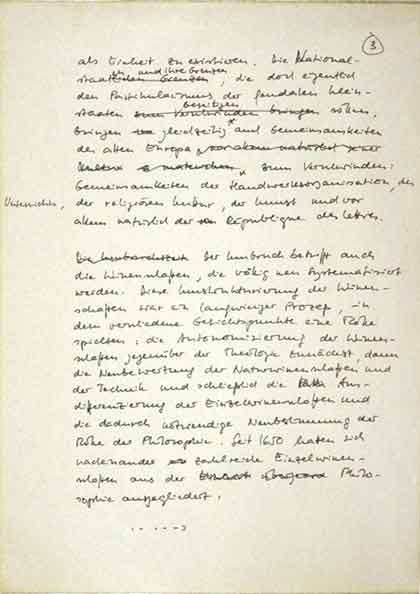 3
als Einheit zu existieren. Die National-
en und ihre Grenzen
staaten Grenzen, die doch eigentlich
den Partikularismus der feudalen Klein-
beseitigen
staaten zum Verschwinden bringen sollten,
bringen gleichzeitig auch Gemeinsamkeiten
des alten Europa, vor allem natürlich
zum Verschwinden:
Gemeinsamkeiten der Handwerksorganisation, des
Unterrichts, der religiösen Kultur, der Kunst und vor
allem natürlich der République des lettres.
Der Umbruch betrifft auch
die Wissenschaften, die völlig neu systematisiert
werden. Diese Umstrukturierung der Wissen-
schaften war ein langwieriger Prozeß, in
dem verschiedene Gesichtspunkte eine Rolle
spielten: die Autonomisierung der Wissen-
schaften gegenüber der Theologie zunächst, dann
die Neubewertung der Naturwissenschaften und
der Technik und schließlich die Aus-
differenzierung der Einzelwissenschaften und
die dadurch notwendige Neubestimmung der
Rolle der Philosophie. Seit 1650 haben sich
nacheinander zahlreiche Einzelwissen-
schaften aus der Philo-
sophie ausgegliedert.